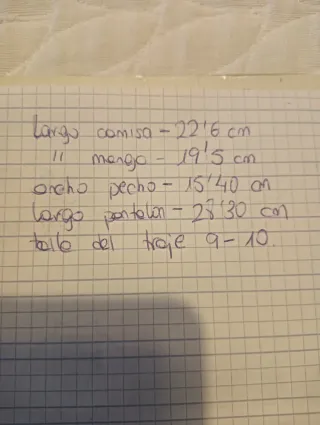 largo camisa - 22'6 cm
" manga - 19'5 cm
ancho pecho - 15'40 cm
largo pantalon - 28'30 cm
talla del traje 9-10.